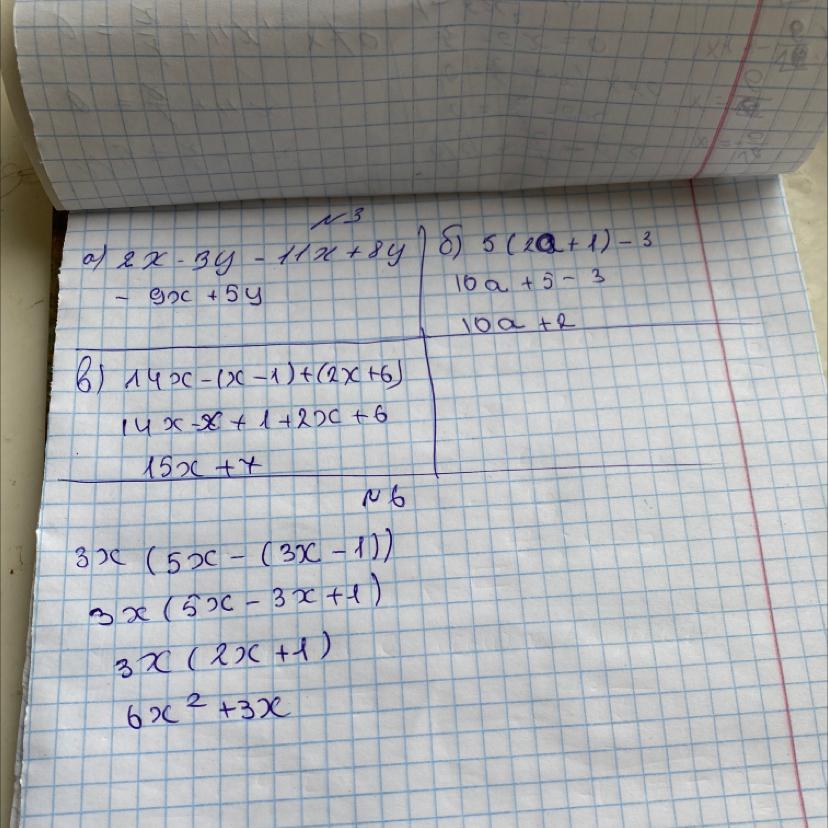 №3
а) 2x - 3y - 11x + 8y
- 9x + 5y
б) 5(2a + 1) - 3
10a + 5 - 3
10a + 2
в) 14x - (x - 1) + (2x + 6)
14x - x + 1 + 2x + 6
15x + 7
№6
3x (5x - (3x - 1))
3x (5x - 3x + 1)
3x (2x + 1)
6x² + 3x